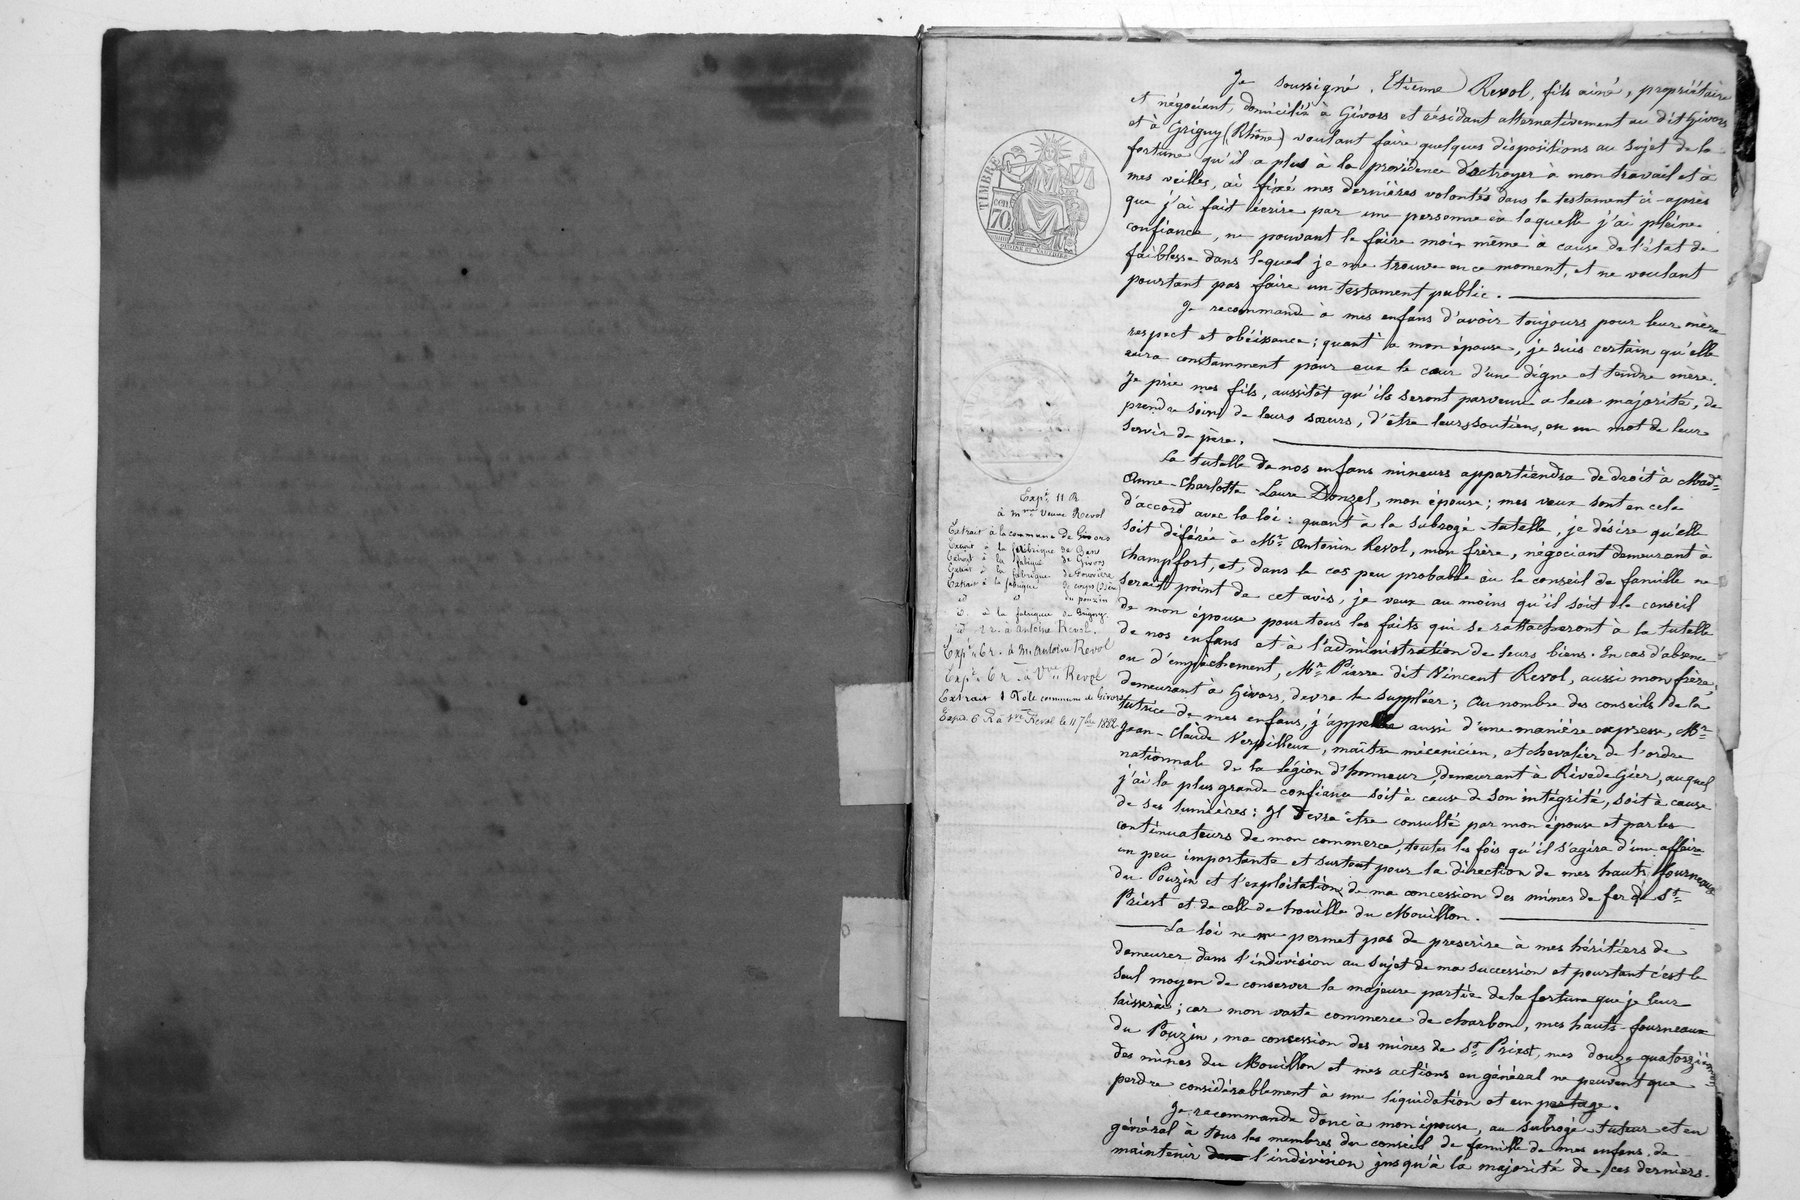 Je soussigné, Etienne Revol, fils ainé, propriétaire
et négociant, domicilié à Givors et résidant alternativement au dit Givors
et à Grigny (Rhône) voulant faire quelques dispositions au sujet de la
fortune qu'il a plus à la providence d'octroyer à mon travail et à
mes veilles, ai fixé mes dernières volontés dans le testament ci-après
que j'ai fait écrire par une personne en laquelle j'ai pleine
confiance, ne pouvant le faire moi même à cause de l'état de
faiblesse dans lequel je me trouve en ce moment, et ne voulant
pourtant pas faire un testament public.
Je recommande à mes enfans d'avoir toujours pour leur mère
respect et obéissance; quant à mon épouse, je suis certain qu'elle
aura constamment pour eux le cœur d'une digne et tendre mère.
Je prie mes fils, aussitôt qu'ils seront parvenus à leur majorité, de
prendre soin de leurs sœurs, d'être leurs soutiens, en un mot de leur
servir de père.
La tutelle de nos enfans mineurs appartiendra de droit à Mad.e
Anne-Charlotte-Laure Donzel, mon épouse; mes vœux sont en cela
d'accord avec la loi: quant à la subrogé-tutelle, je désire qu'elle
soit déférée à Mr Antonin Revol, mon frère, négociant demeurant à
Champfort, et, dans le cas peu probable où le conseil de famille ne
serait point de cet avis, je veux au moins qu'il soit le conseil
de mon épouse pour tous les faits qui se rattacheront à la tutelle
de nos enfans et à l'administration de leurs biens. En cas d'absence
ou d'empêchement, Mr Pierre dit Vincent Revol, aussi mon frère,
demeurant à Givors, devra le suppléer; Au nombre des conseils de la
tutrice de mes enfans, j'appelle aussi d'une manière expresse, Mr
Jean-Claude Verpilleux, maître mécanicien, et chevalier de l'ordre
nationnale de la légion d'honneur, demeurant à Rivedegier, auquel
j'ai la plus grande confiance soit à cause de son intégrité, soit à cause
de ses lumières: Il devra être consulté par mon épouse et par les
continuateurs de mon commerce, toutes les fois qu'il s'agira d'une affaire
un peu importante et surtout pour la direction de mes hauts fourneaux
du Pouzin et l'exploitation de ma concession des mines de fer de St
Priest et de celle de houille du Mouillon.
La loi ne me permet pas de prescrire à mes héritiers de
demeurer dans l'indivision au sujet de ma succession et pourtant c'est le
seul moyen de conserver la majeure partie de la fortune que je leur
laisserai; car mon vaste commerce de charbon, mes hauts-fourneaux
du Pouzin, ma concession des mines de St Priest, mes douze quatorzièmes
des mines du Mouillon et mes actions en général ne peuvent que
perdre considérablement à une liquidation et un partage.
Je recommande donc à mon épouse, au subrogé-tuteur et en
général à tous les membres du conseil de famille de mes enfans, de
maintenir l'indivision jusqu'à la majorité de ces derniers.
TIMBRE
70
cen
Expon 11 R
à mme veuve Revol
Extrait à la commune de Givors
Extrait à la fabrique de Bans
Extrait à la fabrique de Givors
Extrait à la fabrique de
Extrait à la fabrique de
id id du pouzin
id. à la fabrique de Grigny.
id 2 r. à Antoine Revol.
Expon 6 r. à M. Antoine Revol
Expon 6 r. à Vve Revol
Extrait 1 Role commune de Givors
Expon 6 R à Vve Revol le 11 7bre 1882